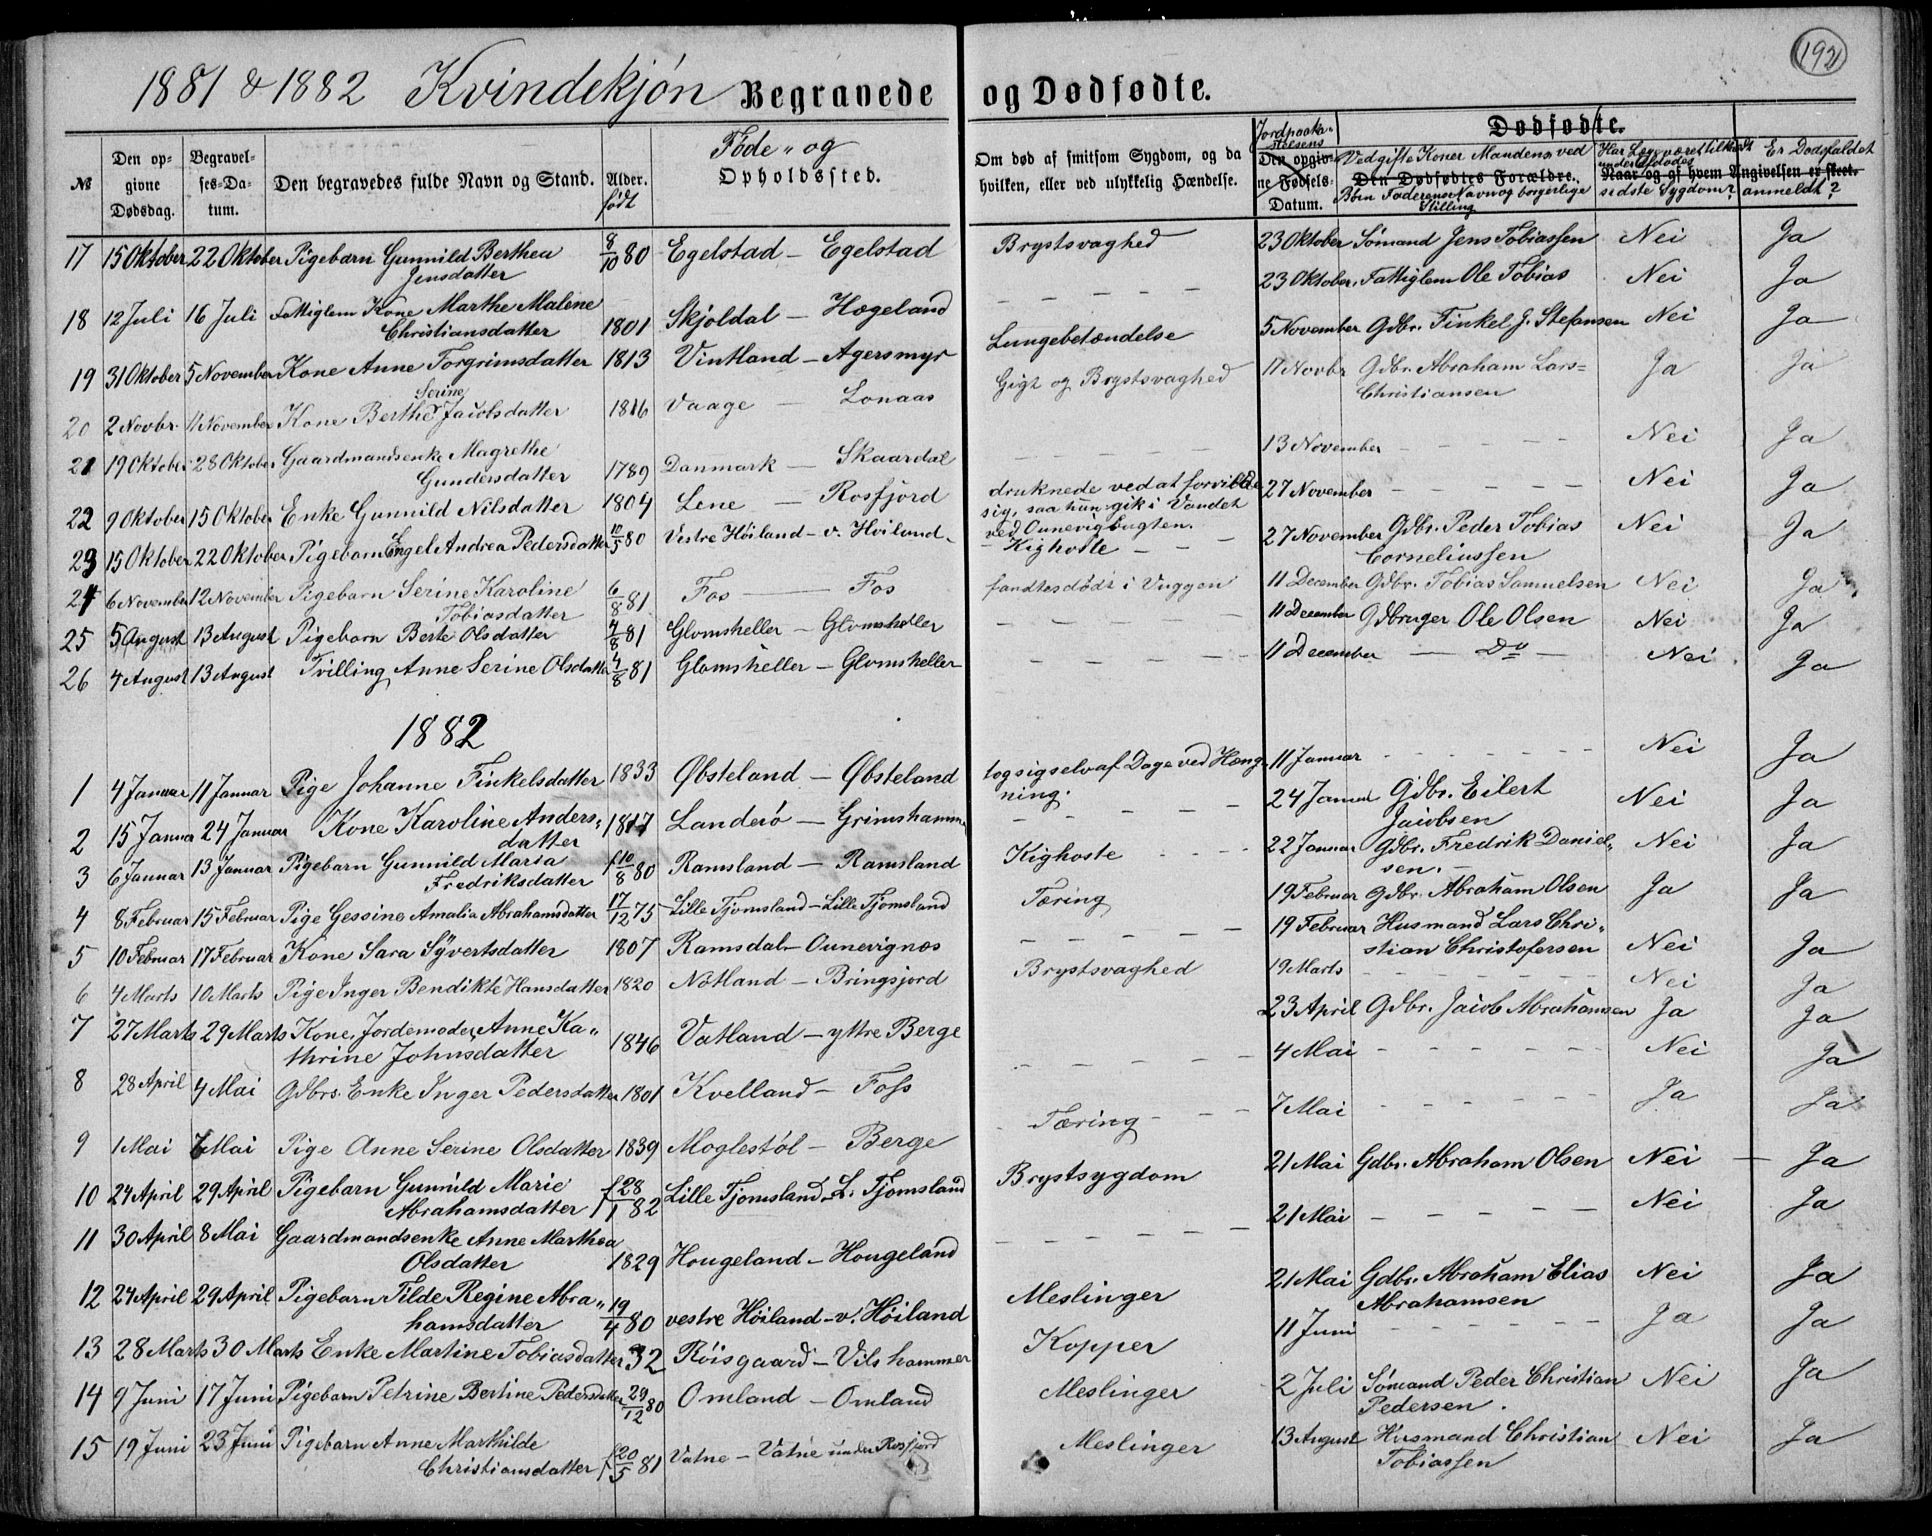 192
1881 & 1882 Kvindekjøn Begravede og Dødfødte.
№
Den opgivne Dødsdag.
Begravelses-Datum.
Den begravedes fulde Navn og Stand.
Alder. født
Føde- og Opholdssted.
Om død af smitsom Sygdom, og da hvilken, eller ved ulykkelig Hændelse.
Jordpaakastelsens Den opgivne Fødsels-Datum.
Dødfødte.
Ved gifte Koner Mandens, ved Den Dødfødtes Forældre. Børn Faderens Navn og borgerlige Stilling
Har Læge været tilkaldt under Afdødes Naar og af hvem Angivelsen er skeet. sidste Sygdom?
Er Dødsfaldet anmeldt?
17 15 Oktober 22 Oktober Pigebarn Gunnild Berthea Jensdatter 8/10 80 Egelstad – Egelstad Brystsvaghed 23 Oktober Sømand Jens Tobiassen Nei Ja
18 12 Juli 16 Juli Fattiglem Kone Marthe Malene Christiansdatter 1801 Skjoldal – Hægeland – – – – – 23 Oktober Fattiglem Ole Tobias Nei Ja
19 31 Oktober 5 November Kone Anne Torgrimsdatter 1813 Vintland – Agersmyr Lungebetændelse 5 November Gdbr. Finkel J. Stefansen Nei Ja
20 2 Novbr. 11 November Kone Berthe Serine Jacobsdatter 1816 Vaage – Lonaas Gigt og Brystsvaghed 11 Novbr Gdbr. Abraham Lars= Christiansen Ja Ja
21 19 Oktober 28 Oktober Gaardmandsenke Magrethe Gundersdatter 1789 Danmark – Skaardal – – – – 13 November – – – – Nei Ja
22 9 Oktober 15 Oktober Enke Gunnild Nilsdatter 1804 Lene – Rosfjord druknede ved at forvilde sig, saa hun gik i Vandet ved Ounevigbugten. 27 November – – – – Nei Ja
23 15 Oktober 22 Oktober Pigebarn Engel Andrea Pedersdatter 10/5 80 Vestre Höiland – v. Hoiland – Kighoste – – – 27 November Gdbr. Peder Tobias Corneliussen Nei Ja
24 6 November 12 November Pigebarn Serine Karoline Tobiasdatter 6/8 81 Fos – Fos fandtes død i Vuggen 11 December Gdbr. Tobias Samuelsen Nei Ja
25 5 August 13 August Pigebarn Berte Olsdatter 4/8 81 Glomsheller – Glomsheller – – – – 11 December Gdbruger Ole Olsen Nei Ja
26 4 August 13 August Tvilling Anne Serine Olsdatter 4/8 81 Glomsheller – Glomsheller – – – – 11 December – Do – Nei Ja
1882
1 4 Januar 11 Januar Pige Johanne Finkelsdatter 1833 Øbsteland – Øbsteland tog sig selv af Dage ved Hængning. 11 Januar – – – – Nei Ja
2 15 Januar 24 Januar Kone Karoline Andersdatter 1817 Landerö – Grimshamme – – – – 24 Januar Gdbr. Eilert Jacobsen Nei Ja
3 6 Januar 13 Januar Pigebarn Gunnild Maria Fredriksdatter f 10/8 80 Ramsland – Ramsland Kighoste – – – 22 Januar Gdbr. Fredrik Danielsen. Nei Ja
4 8 Februar 15 Februar Pige Gessine Amalia Abrahamsdatter 17/12 75 Lille Tjomsland – Lille Tjomsland Tæring 19 Februar Gdbr. Abraham Olsen Ja Ja
5 10 Februar 17 Februar Kone Sara Syvertsdatter 1807 Ramsdal – Ounevignæs – – – – – 19 Februar Husmand Lars Christian Christofersen Nei Ja
6 4 Marts 10 Marts Pige Inger Bendikte Hansdatter 1820 Nötland – Bringsjord Brystsvaghed 19 Marts – – – – Nei Ja
7 27 Marts 29 Marts Kone, Jordemoder, Anne Kathrine Johnsdatter 1846 Vatland – yttre Berge 23 April Gdbr. Jacob Abrahamsen Ja Ja
8 28 April 4 Mai Gdbrs. Enke Inger Pedersdatter 1801 Kvelland – Foss – – – – – 4 Mai – – – – Nei Ja
9 1 Mai 7 Mai Pige Anne Serine Olsdatter 1839 Moglestöl – Berge Tæring – – – 7 Mai – – – – Ja Ja
10 24 April 29 April Pigebarn Gunnild Marie Abrahamsdatter f 28/1 82 Lille Tjomsland – L. Tjomsland Brystsygdom 21 Mai Gdbr. Abraham Olsen Nei – Ja
11 30 April 8 Mai Gaardmandsenke Anne Marthea Olsdatter 1829 Hougeland – Hougeland – – – – – 21 Mai – – – – Nei Ja
12 24 April 29 April Pigebarn Tilde Regine Abrahamsdatter 19/4 80 vestre Höiland – v. Höiland Meslinger 21 Mai Gdbr. Abraham Elias Abrahamsen Nei Ja
13 28 Marts 30 Marts Enke Martine Tobiasdatter 32 Röisgaard – Vilshammer Kopper 11 Juni – – – – Ja Ja
14 9 Juni 17 Juni Pigebarn Petrine Bertine Pedersdatter 29/12 80 Omland – Omland Meslinger 2 Juli Sömand Peder Christian Pedersen. Nei Ja
15 19 Juni 23 Juni Pigebarn Anne Marthilde Christiansdatter f 20/5 81 Vatne – Vatne under Rosfjord Meslinger 13 August Husmand Christian Tobiassen Nei Ja